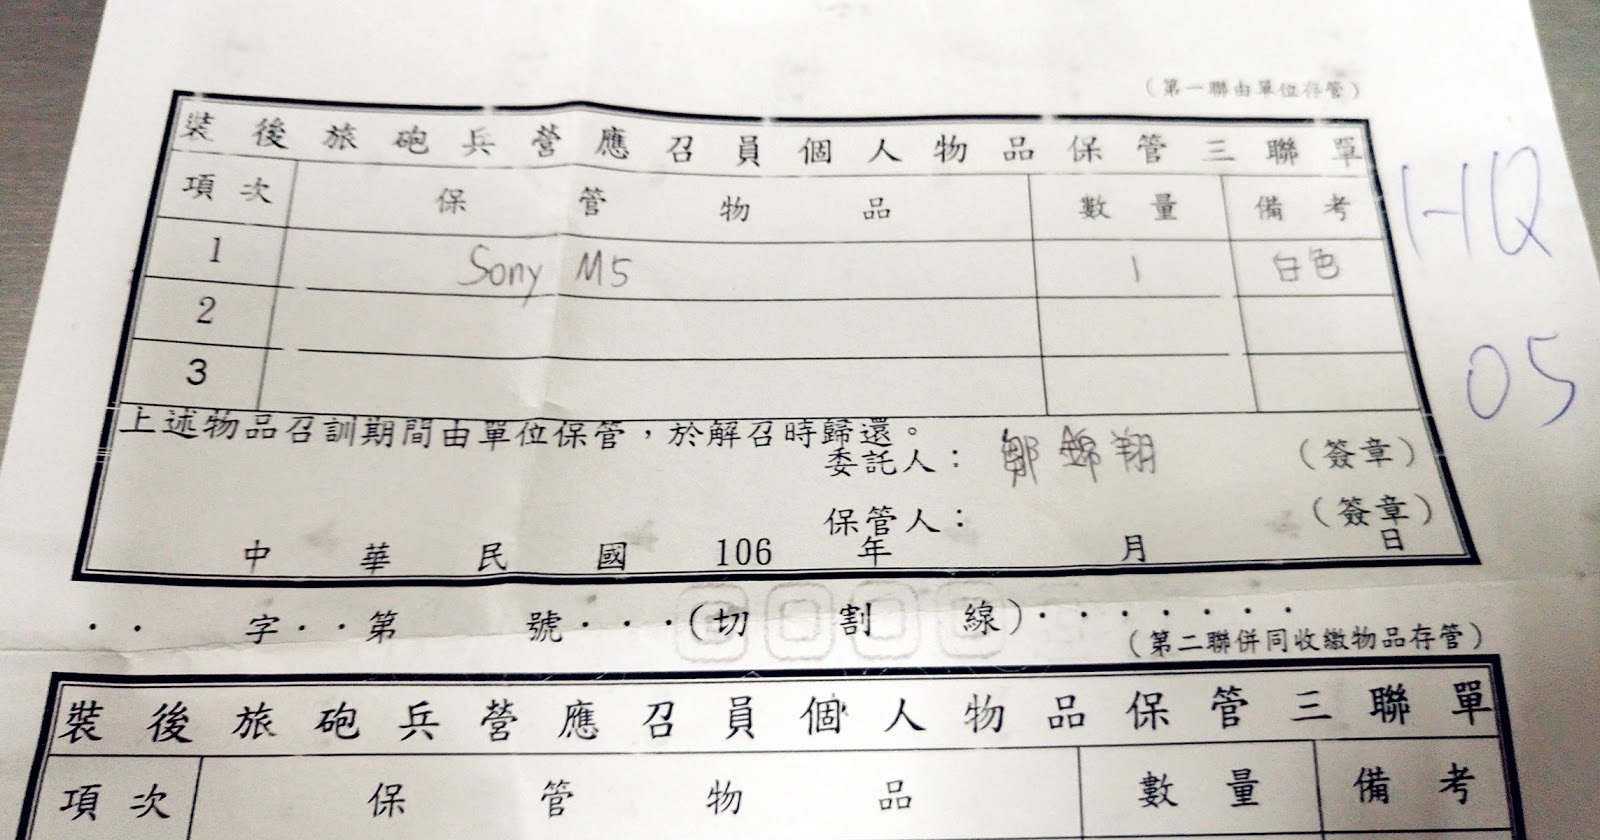 （第一聯由單位存管）
裝後旅砲兵營應召員個人物品保管三聯單
項次 保管物品 數量 備考
1 Sony M5 1 白色
2
3
HQ
05
上述物品召訓期間由單位保管，於解召時歸還。
委託人： 鄒錦翔 （簽章）
保管人： （簽章）
中華民國 106 年 月 日
··字··第 號···(切割線)·······
（第二聯併同收繳物品存管）
裝後旅砲兵營應召員個人物品保管三聯單
項次 保管物品 數量 備考